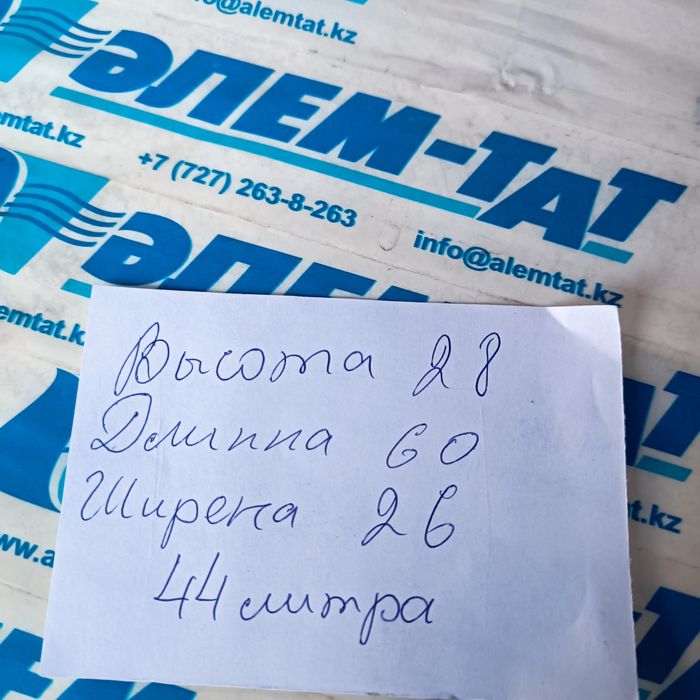 info@alemtat.kz
ӘЛЕМ-ТАТ
emtat.kz
+7 (727) 263-8-263
info@alemtat.kz
ӘЛЕМ-ТАТ
emtat.kz
Высота 28
Длинна 60
Ширена 26
44 литра
ww.a
t.kz